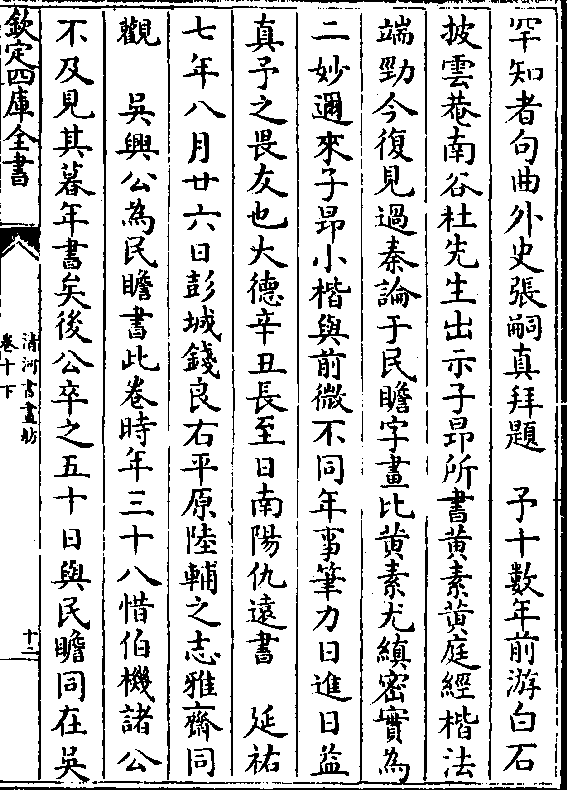 罕知者句曲外史張嗣真拜題　予十數年前游白石
披雲菴南谷杜先生出示子昂所書黄素黄庭經楷法
端勁今復見過秦論于民瞻字畫比黄素尤縝密實為
二妙邇來子昂小楷與前微不同年事筆力日進日益
真予之畏友也大德辛丑長至日南陽仇遠書　延祐
七年八月廿六日彭城錢良右平原陸輔之志雅齋同
觀　吳興公為民瞻書此卷時年三十八惜伯機諸公
不及見其暮年書矣後公卒之五十日與民瞻同在吳
欽定四庫全書
清河書畫舫
卷十下
十二